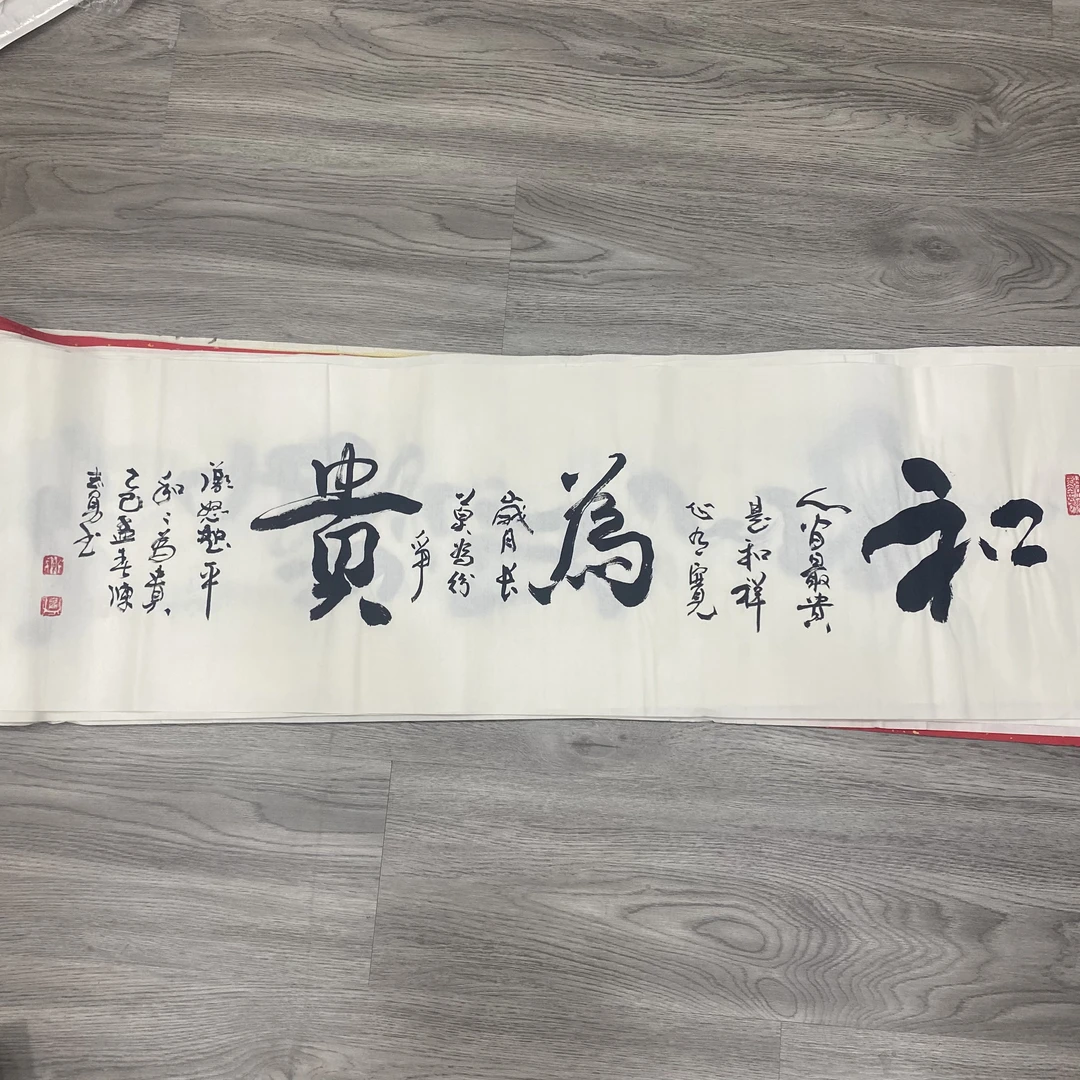 和
最貴
是和祥
心有寬
為
歲月長
莫為紛
爭
貴
怒 平
和〻為貴
乙巳孟春陳
勇书